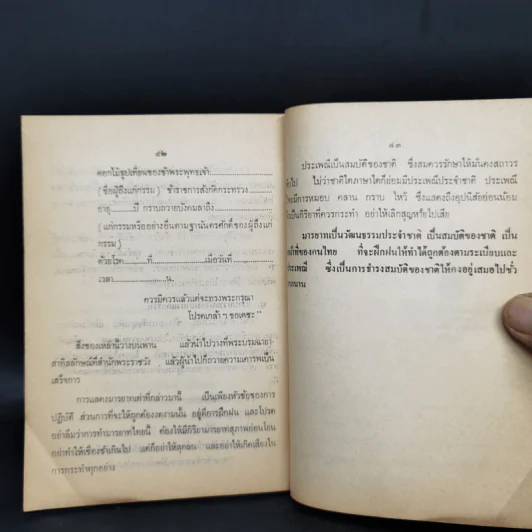 ๕๒
ดอกไม้ธูปเทียนของข้าพระพุทธเจ้า....................
(ชื่อผู้ถึงแก่กรรม) ข้าราชการสังกัดกระทรวง..........
อายุ.........ปี กราบถวายบังคมลาถึง....................
(แก่กรรมหรืออย่างอื่นตามฐานันดรศักดิ์ของผู้ถึงแก่
กรรม)
ด้วยโรค..........ที่....................เมื่อวันที่....................
เวลา....................น.
ควรมิควรแล้วแต่จะทรงพระกรุณา
โปรดเกล้าฯ ขอเดชะ"
สิ่งของเหล่านี้วางบนพาน แล้วนำไปวางที่พระบรมฉายา
สาทิสลักษณ์ที่สำนักพระราชวัง แล้วผู้นำไปก็ถวายความเคารพเป็น
เสร็จการ
การแสดงมารยาทเท่าที่กล่าวมานี้ เป็นเพียงหัวข้อของการ
ปฏิบัติ ส่วนการที่จะให้ถูกต้องงดงามนั้น อยู่ที่การฝึกฝน และโปรด
อย่าลืมว่าการทำมารยาทไทยนี้ ต้องให้มีกิริยามารยาทสุภาพอ่อนโยน
อย่าทำให้เชื่องช้าเกินไป แต่ก็อย่าให้ลุกลน และอย่าให้เกิดเสียงใน
การกระทำทุกอย่าง
๕๓
ประเพณีเป็นสมบัติของชาติ ซึ่งสมควรรักษาให้มั่นคงสถาวร
ไป ไม่ว่าชาติใดภาษาใดก็ย่อมมีประเพณีประจำชาติ ประเพณี
มีการหมอบ คลาน กราบ ไหว้ ซึ่งแสดงถึงอุปนิสัยอ่อนน้อม
เป็นกิริยาที่ควรกระทำ อย่าให้เลิกสูญหรือไปเสีย
มารยาทเป็นวัฒนธรรมประจำชาติ เป็นสมบัติของชาติ เป็น
ที่ของคนไทย ที่จะฝึกฝนให้ทำได้ถูกต้องตามระเบียบและ
ประเพณี ซึ่งเป็นการธำรงสมบัติของชาติให้คงอยู่เสมอไปชั่ว
นาน